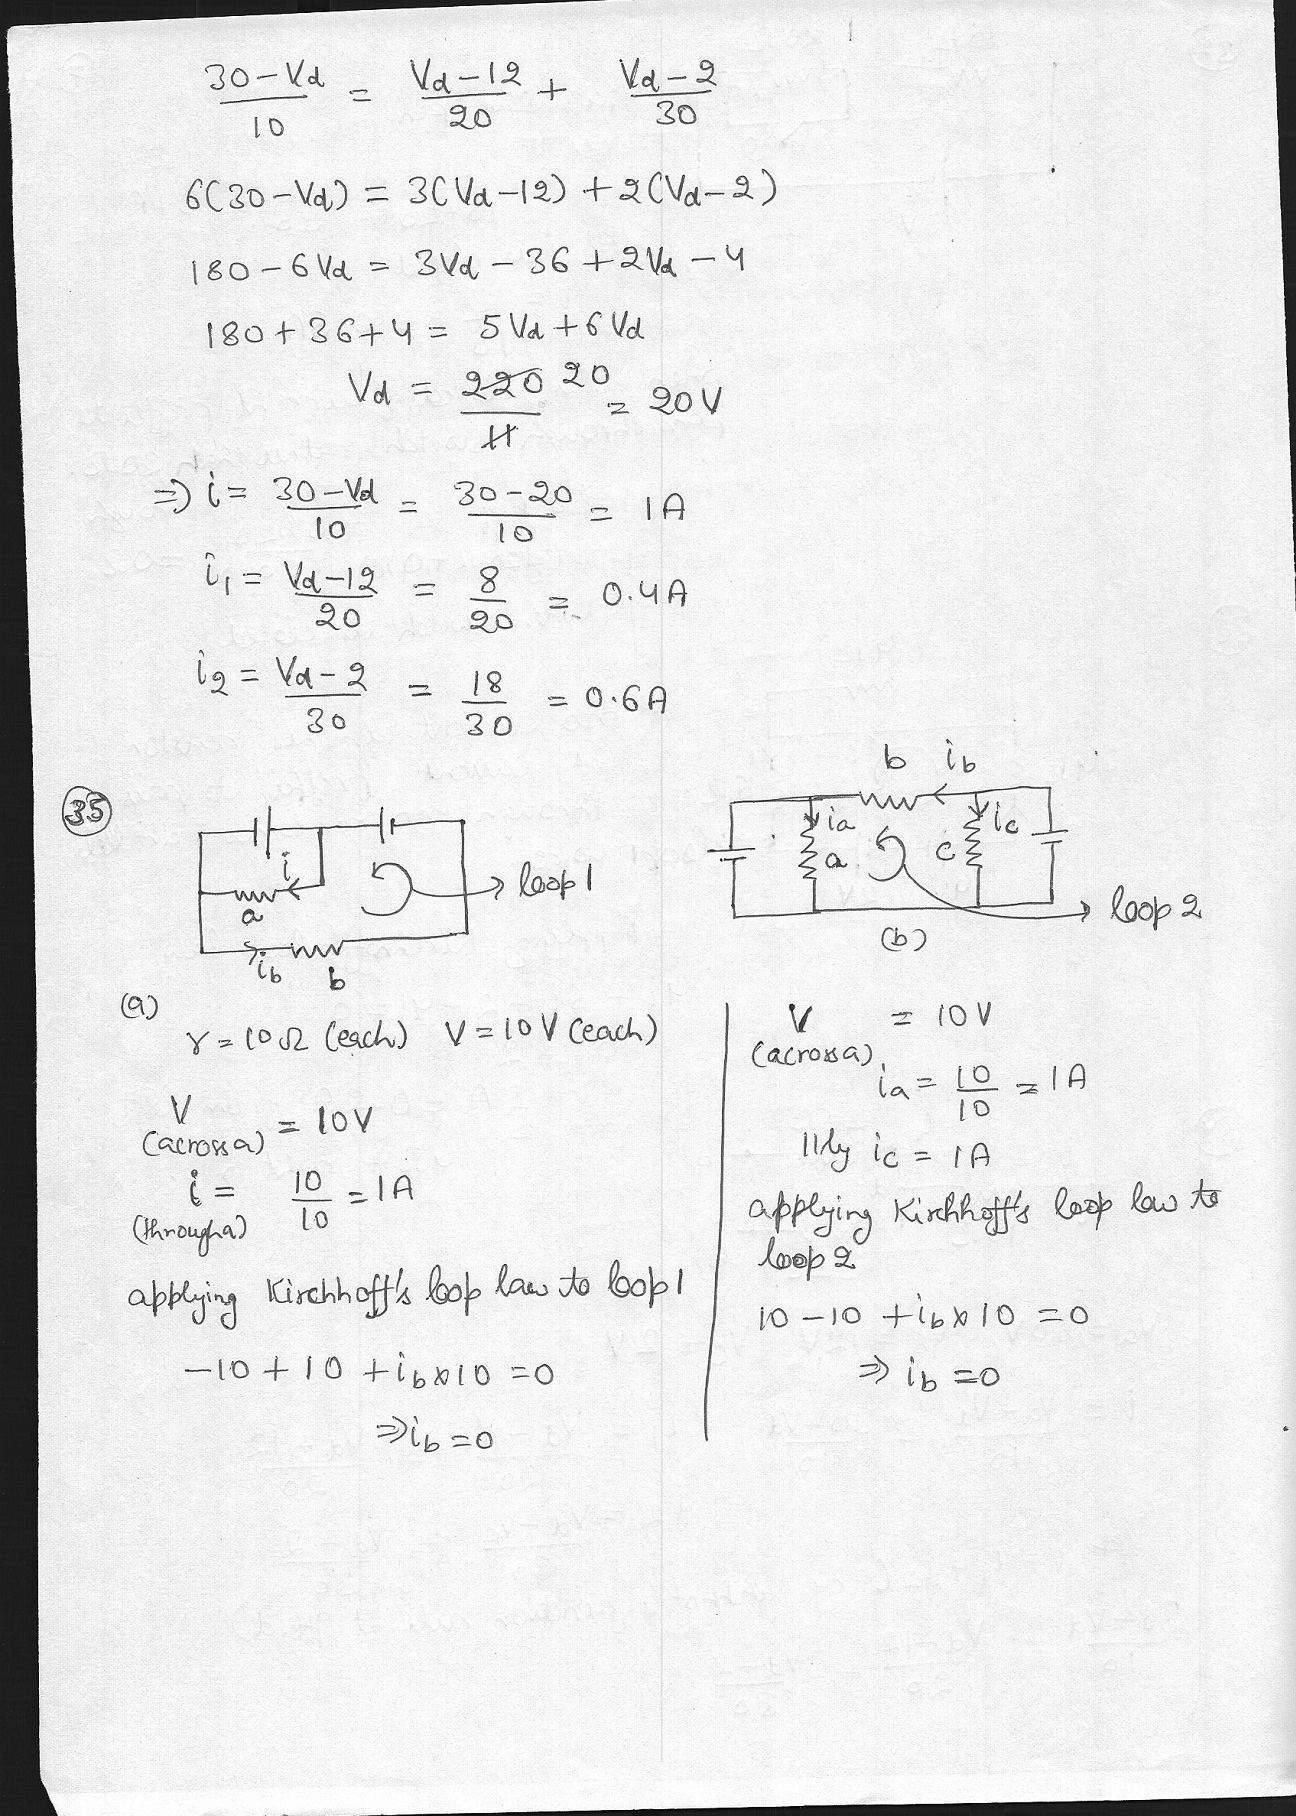 30-Vd/10 = Vd-12/20 + Vd-2/30
6(30-Vd) = 3(Vd-12) + 2(Vd-2)
180-6Vd = 3Vd-36+2Vd-4
180+36+4 = 5Vd+6Vd
Vd = 220/11 20 = 20V
=> i = 30-Vd/10 = 30-20/10 = 1A
i1 = Vd-12/20 = 8/20 = 0.4A
i2 = Vd-2/30 = 18/30 = 0.6A
35
i
a
ib
b
loop 1
(a)
b ib
ia
a
ic
c
loop 2
(b)
r = 10Ω (each) V = 10V (each)
V (across a) = 10V
i (through a) = 10/10 = 1A
applying Kirchhoff's loop law to loop 1
-10 + 10 + ib×10 = 0
=> ib = 0
V (across a) = 10V
ia = 10/10 = 1A
111ly ic = 1A
applying Kirchhoff's loop law to
loop 2
10 - 10 + ib×10 = 0
=> ib = 0